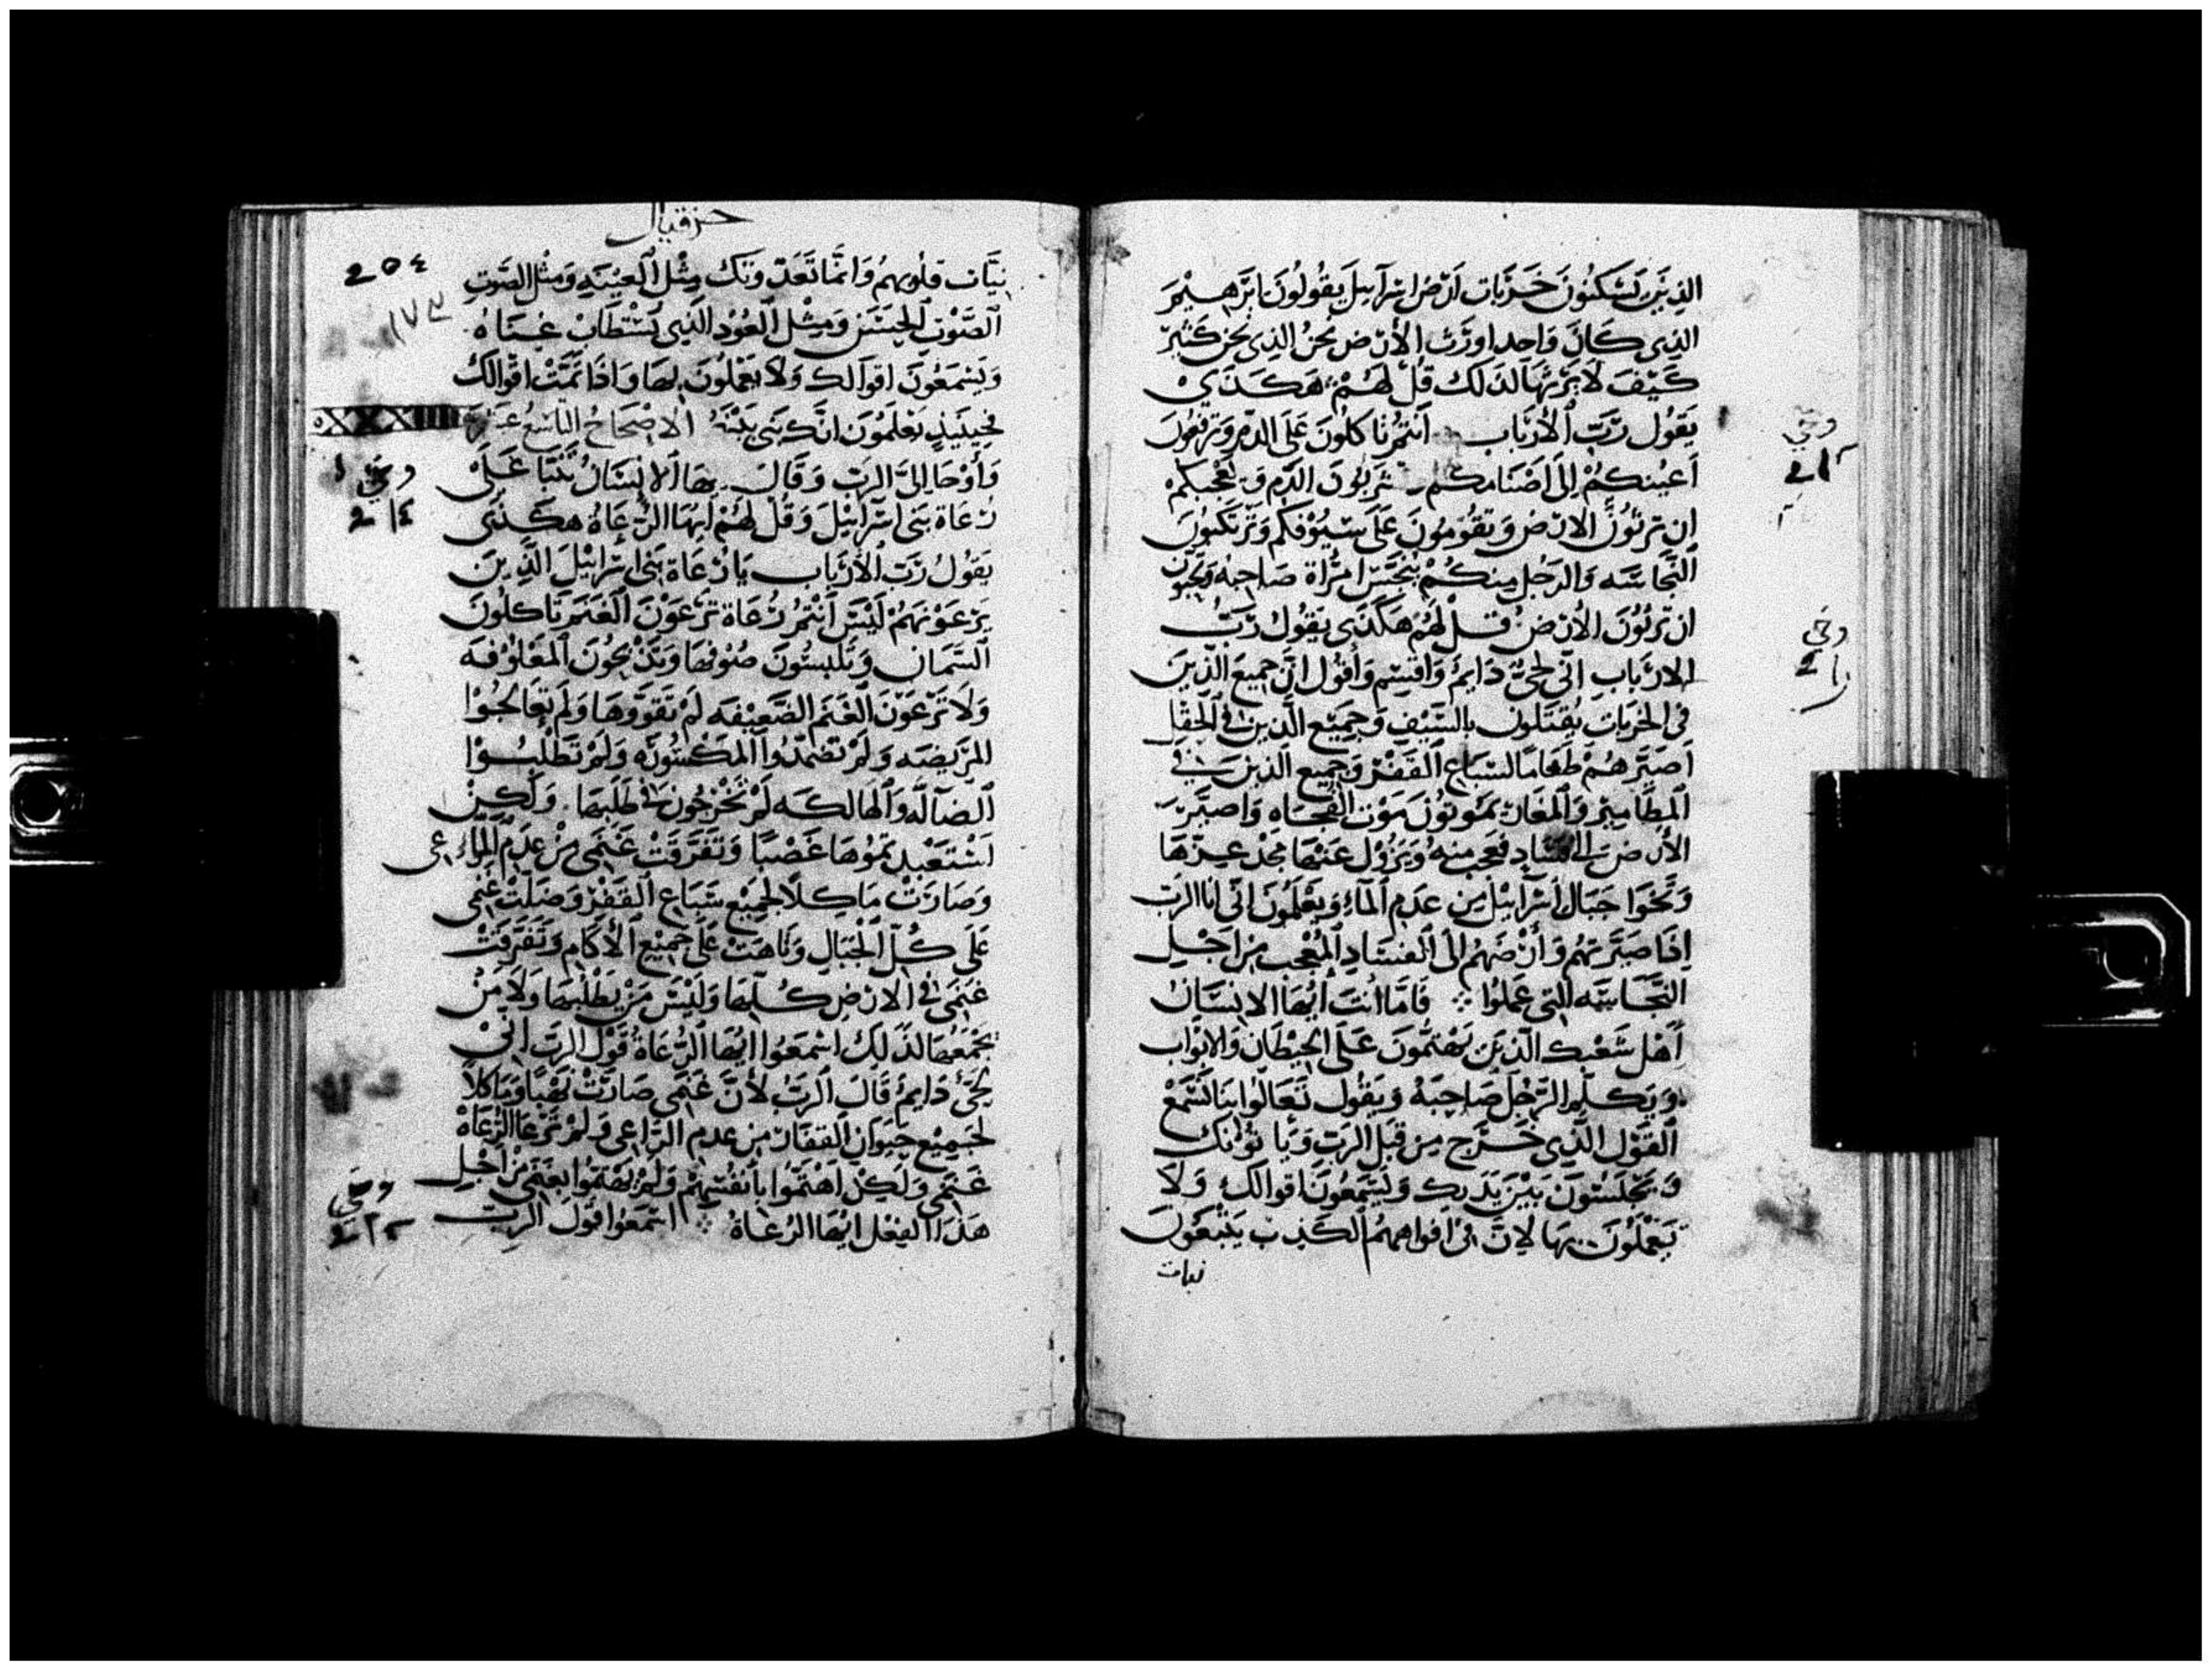 الذين يسكنون خربات ارض اسرآييل يقولون ابرهيم
الذى كان واحدا ورث الأرض نحن الذى نحن كثير
كيف لا نرثها لذلك قل لهم هكذى
يقول رب الأرباب انتم تاكلون على الدم وترفعون
اعينكم الى اصنامكم تربون الدم
ان ترثون الارض وتقومون على سيوفكم وترتكبون
النجاسه والرجل منكم ينجس امراة صاحبه وتحبون
ان ترثون الأرض قل لهم هكذى يقول رب
الارباب انى لحى دايم واقسم وأقول ان جميع الذين
فى الخربات يقتلون بالسيف وجميع الذين فى الحقل
اصيرهم طعاما لسباع القفر وجميع الذين فى
المطامير والمغاير يموتون موت الفجاه واصير
الأرض الى فساد فعجب منه ويزول عنها مجد عزها
وتخوا جبال اسرآييل من عدم المآء ويعلمون انى انا الرب
اذا صيرتهم وأرضهم الى الفساد المعجب من اجل
النجاسه التى عملوا فاما انت ايها الانسان
أهل شعبك الذين يهتمون على الحيطان والابواب
ويكلم الرجل صاحبه ويقول تعالوا بنا لنسمع
القول الذى خرج من قبل الرب ويأتونك
ويجلسون بين يديك ويسمعون اقوالك ولا
يعملون بها لان فى افواههم الكذب يتبعون
نيات
حزقيال
204
١٧٣
نيات قلوبهم وانما تعد وتك مثل العينيه ومثل الصوت
الصوت الحسن ومثل العود الذى يستطاب غناه
ويسمعون اقوالك ولا يعملون بها واذا تمت اقوالك
فحينيذ يعلمون انك نبى بينه الاصحاح التاسع عشر
وأوحا الى الرب وقال يها الانسان تنبا على
رعاة بنى اسرآييل وقل لهم ايها الرعاة هكذى
يقول رب الأرباب يا رعاة بنى اسرآييل الذين
يرعونهم ليس انتم رعاة ترعون الغنم تاكلون
السمان وتلبسون صوفها وتذبحون المعلوفه
ولا ترعون الغنم الضعيفه لم تقووها ولم تعالجوا
المريضه ولم تضمدوا المكسوره ولم تطلبوا
الضآله والهالكه لم تخرجون فى طلبها ولكن
استعبدتموها غصبا وتفرقت غنمى من عدم الراعى
وصارت ماكلا لجميع سباع القفر وضلت غنمى
على كل الجبال وتاهت على جميع الأكام وتفرقت
غنمى فى الارض كلها وليس من يطلبها ولا من
يجمعها لذلك اسمعوا ايها الرعاة قول الرب انى
لحى دايم قال الرب لأن غنمى صارت نهبا وماكلا
لجميع حيوان القفار من عدم الراعى ولم ترعا الرعاه
غنمى ولكن اهتموا بأنفسهم ولم يهتموا بغنمى من اجل
هذا الفعل ايها الرعاة اسمعوا قول الرب